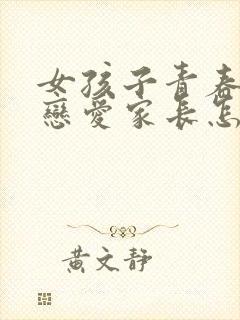 女孩子青春
戀愛家長怎
黃文靜